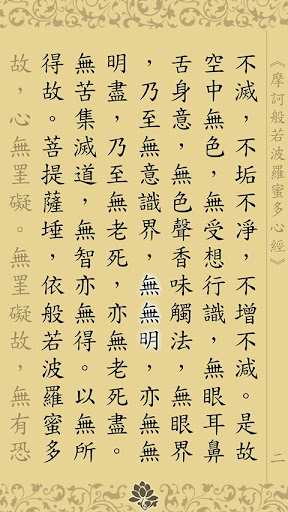 《摩訶般若波羅蜜多心經》
二
不滅，不垢不淨，不增不減。是故
空中無色，無受想行識，無眼耳鼻
舌身意，無色聲香味觸法，無眼界
，乃至無意識界，無無明，亦無無
明盡，乃至無老死，亦無老死盡。
無苦集滅道，無智亦無得。以無所
得故。菩提薩埵，依般若波羅蜜多
故，心無罣礙。無罣礙故，無有恐